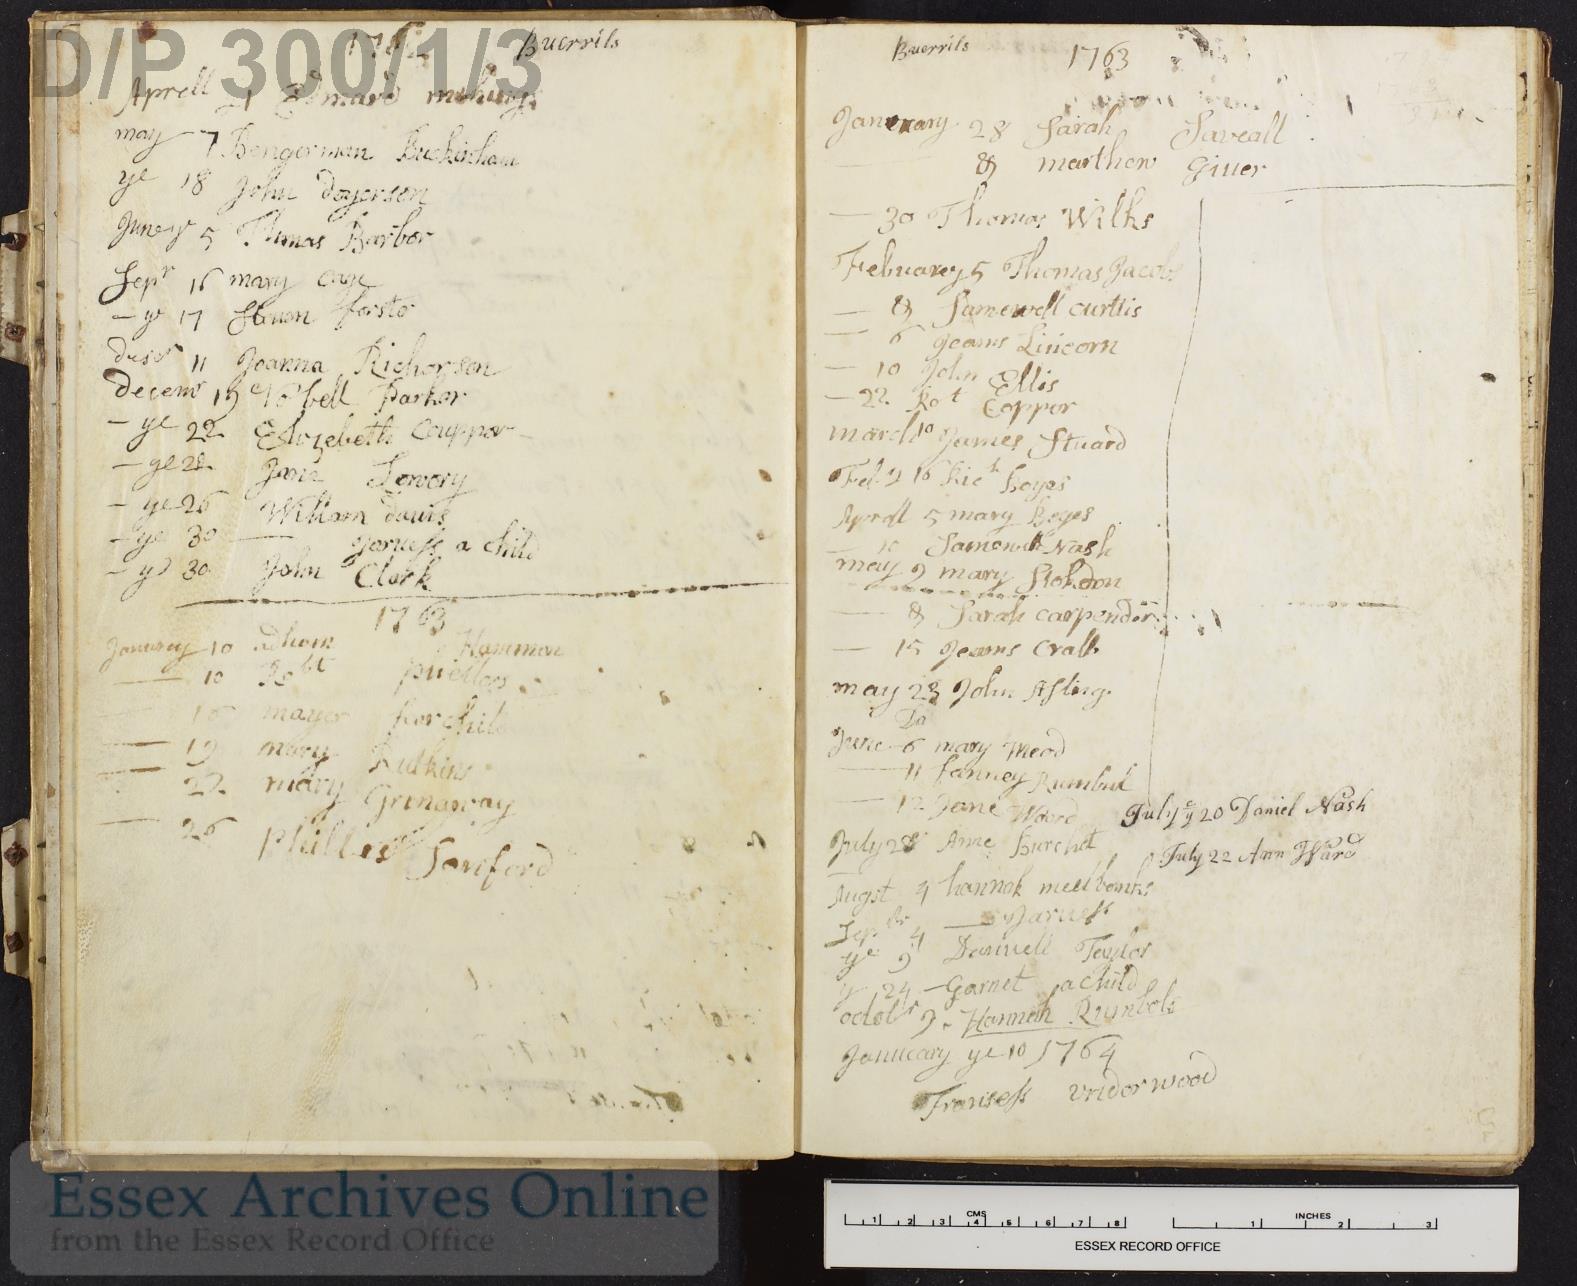 D/P 300/1/3
1762 Buerrils
Aprell 21 Edmard
may 7 Bengerman Buckinham
ye 18 John Dagerson
June ye 5 Thmas Barbor
Sepr 16 mary Cage
- ye 17 Steuen
Desr 11 Joanna Richorson
Decemr 19 bell Parker
- ye 22 Elizebeth Coupper
- ye 28 Jane Lowory
- ye 26 William Davis
- ye 30 — Jarness a child
- ye 30 John Clark
1763
Janurey 10 Hammon
— 10 Robt
— 16 mayer
— 19 mary Rutkins
— 22 mary Grenaway
— 26 Phillis Sanford
Buerrils 1763
Janurary 28 Sarah Saveall
— 8 marthew Giuer
— 30 Thomas Wilks
Februarey 5 Thomas Jacobs
— 8 Samewell Curttis
— 6 Jeams Lincorn
— 10 John Ellis
— 22 Robt Coppor
march 10 James Stuard
Feb.y 16 Rich Boyes
Aprell 5 mary Boyes
— 10 Samewell Nash
may 9 mary Stokdon
— 8 Sarah Carpender
— 15 Jeams Crall
may 28 John Asling
Do
June 6 mary Mead
— 11 Fanney Rumbul
— 12 Jane Woard
July ye 20 Daniel Nash
July 28 Anne Burchet
July 22 Ann Ward
Augst 4 hannah meelbanks
Sepbr 4 — Jarness
ye 9 Daniuell Taylor
y 24 — Garnet a child
octobr 9 - Hannah Rumbols
Janueary ye 10 1764
Fransess Underwood
Essex Archives Online
from the Essex Record Office
CMS
1 2 3 4 5 6 7 8
INCHES
1 2 3
ESSEX RECORD OFFICE